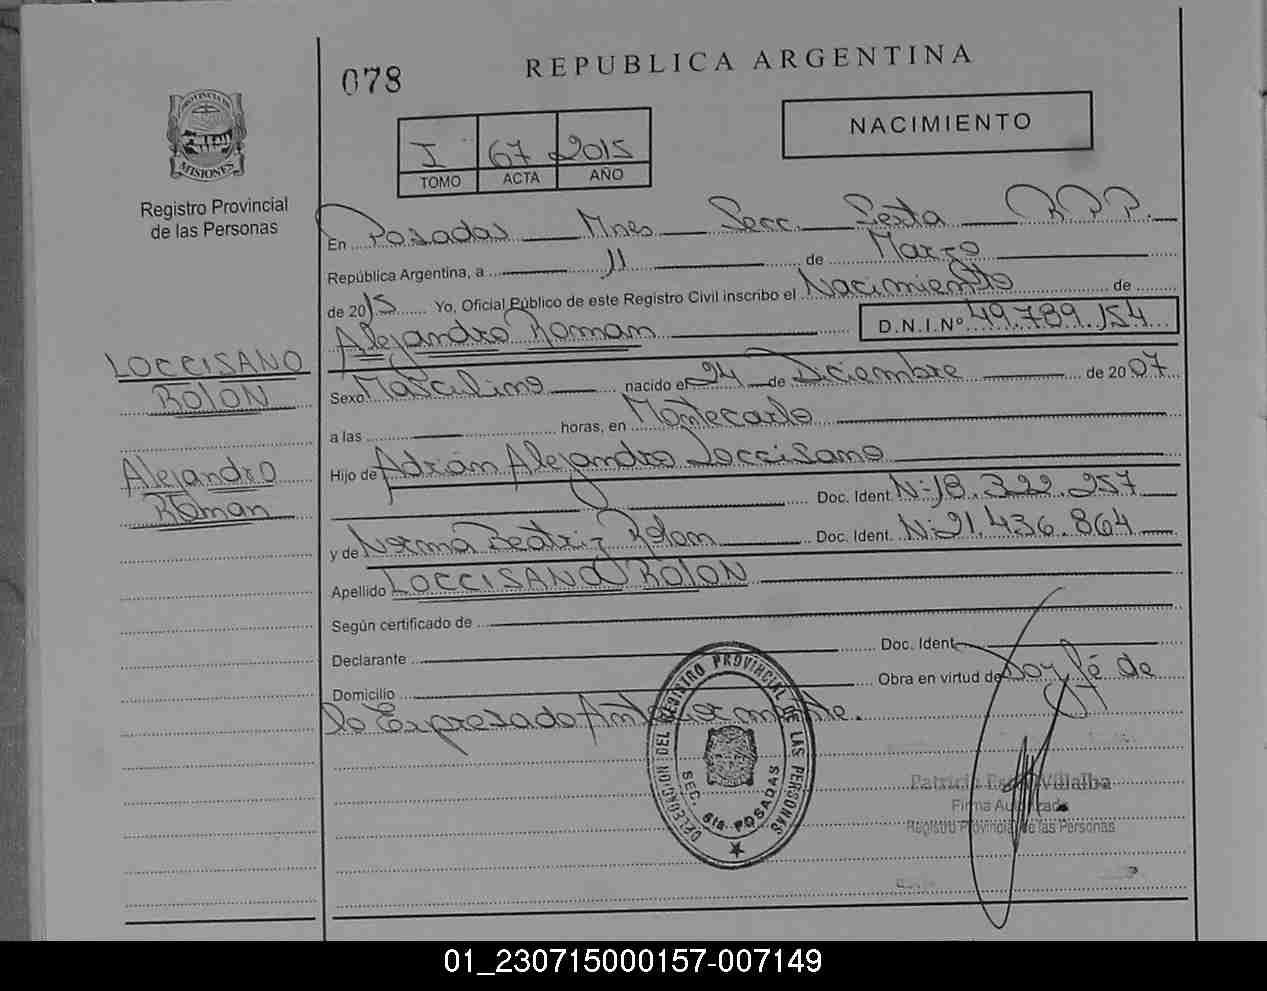 078
REPUBLICA ARGENTINA
NACIMIENTO
I 67 2015
TOMO ACTA AÑO
PROVINCIA DE
MISIONES
Registro Provincial
de las Personas
En Posadas Mnes Secc. Sexta R.P.P.
República Argentina, a 11 de Marzo
de 2015 Yo, Oficial Público de este Registro Civil inscribo el Nacimiento de
Alejandro Roman D.N.I.Nº 49.789.154
LOCCISANO
ROLON
Alejandro
Roman
Sexo Masculino nacido el 24 de Diciembre de 2007
a las horas, en Montecarlo
Hijo de Adrian Alejandro Loccisano
Doc. Ident. Nº 18.322.257
y de Norma Beatriz Rolon Doc. Ident. Nº 21.436.864
Apellido LOCCISANO ROLON
Según certificado de
Declarante Doc. Ident.
Domicilio Obra en virtud de Doy fé de
lo Expresado Anteriormente.
DELEGACION DEL REGISTRO PROVINCIAL DE LAS PERSONAS
SEC. 6ta POSADAS
Villalba
Firma Autorizada
Registro Provincial de las Personas
01_230715000157-007149